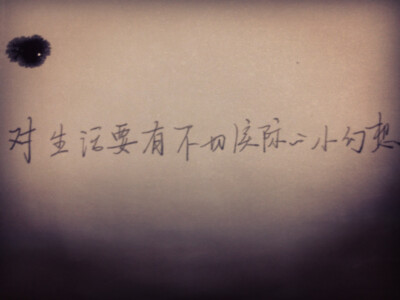 对生活要有不切实际的小幻想